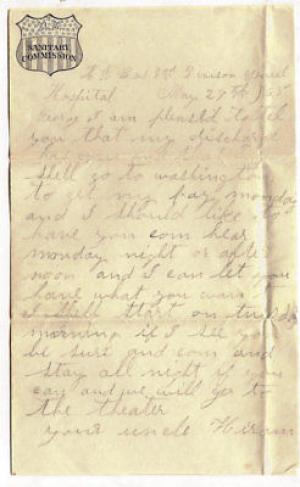 U.S.
SANITARY
COMMISSION
Division General
Hospital May 27th
I am pleased to tell
you that my discharge
has
shell go to washington
to get my pay monday
and I should like to
have you com hear
monday night or after
noon and I can let you
have what you want
I shell start on tusda
morning if I see you
be sure and com and
stay all night if you
can and we will go to
the theater
your uncle Hiram